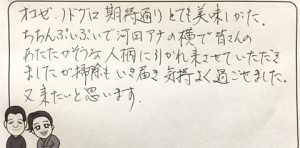 オコゼ、ノドグロ期待通りとても美味しかた。
ちちんぷいぷいで河田アナの横で皆さんの
あたたかそうな人柄に引かれ来させていただき
ましたが掃除もいき届き気持よく過ごせました。
又来たいと思います。